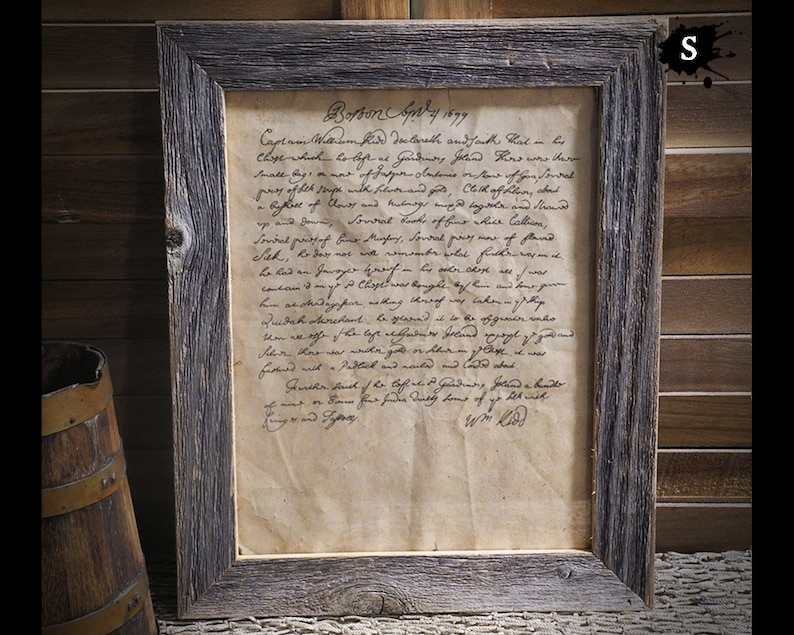 S
Boston Sept 4 1699
Captain William Kidd declareth and saith That in his
Chest which he left at Gardiners Island There were three
small bags or more of Jasper Antonio or Stone of Goa Several
pieces of silk stript with Silver and gold, Cloth of Silver, about
a bushell of Cloves and Nutmegs mixed together and strawed
up and down, Several books of fine white Callicoa,
Several pieces of fine Muslins, Several pieces more of flowred
Silk, he does not well remember what further was in it
he had an Invoyce thereof in his other chest all yt was
contain'd in ye sd Chest was bought by him and some given
him at Madagascar nothing thereof was taken in ye ship
Quidah Merchant he esteem'd it to be of greater value
then all else yt he left at Gardiners Island except ye gold and
Silver there was neither gold or Silver in ye Chest it was
fastned with a Padlock and nailed and corded about
Further saith yt he left at sd Gardiners Island a bundle
of nine or tenn fine India Quilts some of ym silk with
fringes and Tassells.
Wm Kidd